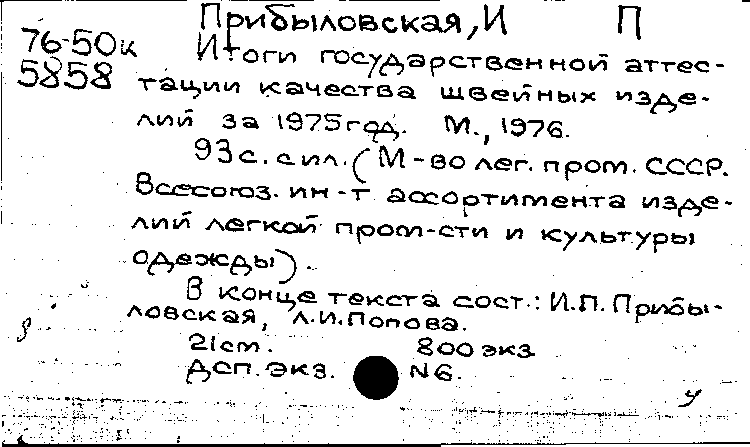 Прибыловская, И П
76-50к Итоги государственной аттес-
5858 тации качества швейных изде-
лий за 1975 год. М., 1976.
93 с. с ил. (М-во лег. пром. СССР.
Всесоюз. ин-т ассортимента изде-
лий легкой пром-сти и культуры
одежды).
В конце текста сост.: И.П. Прибы-
ловская, Л.И. Попова.
21 cm. 800 экз
Дсп. экз. N6.
у